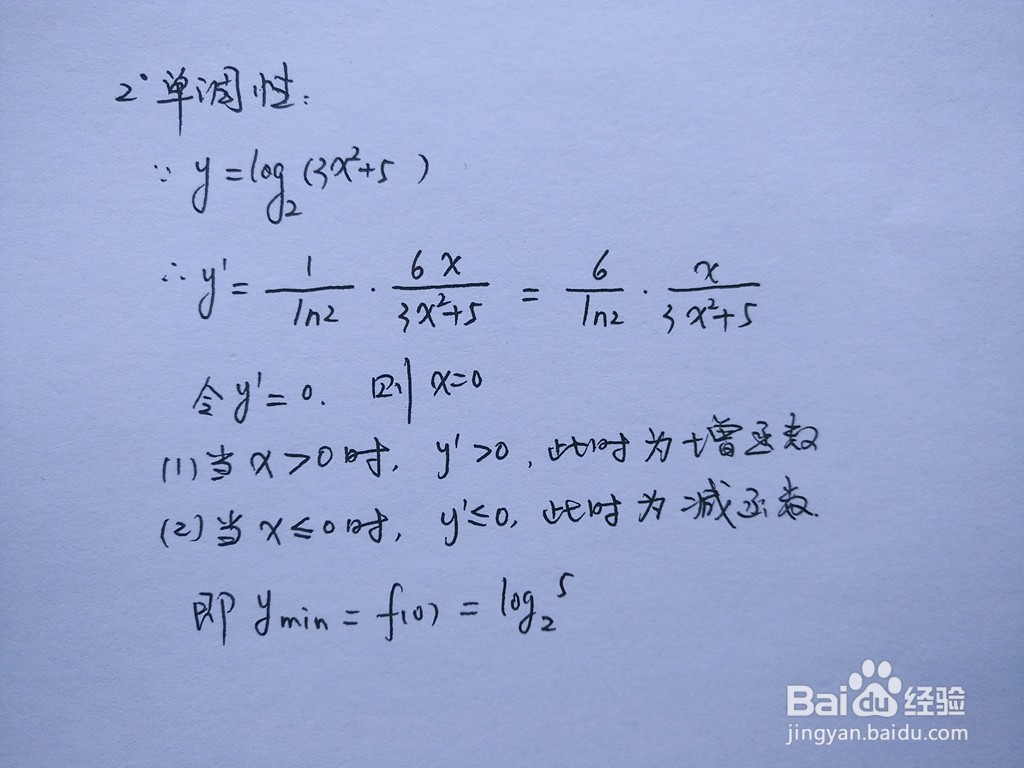 2° 单调性:
∵ y = log₂(3x²+5)
∴ y' = 1/ln2 · 6x/(3x²+5) = 6/ln2 · x/(3x²+5)
令 y' = 0. 则 x=0
(1) 当 x>0 时, y'>0, 此时为增函数
(2) 当 x≤0 时, y'≤0, 此时为减函数.
即 y min = f(0) = log₂5
Bai du 经验
jingyan.baidu.com